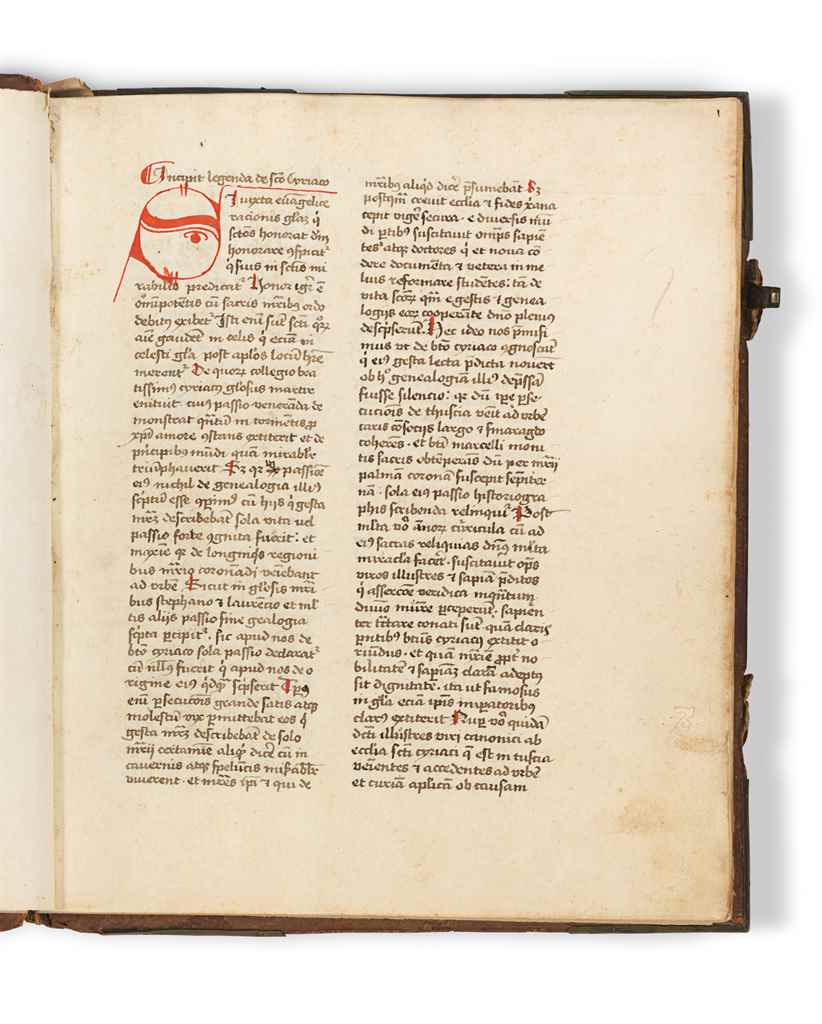 Incipit legenda de sc̄o Cyriaco
Iuxta euāgelice
racionis gl̄az q̄
sctōs honorat dm̄
honorare ꝯspicit᷑
ꝯsius in sctīs mi
rabilis predicat᷑ Honor igr̄ ē
oīmpotētis cū sacris mr̄ibꝯ ordo
debitꝯ exibet᷑ Isti enī sūt scti qꝛ
aīe gaudēt in celis q̄ eciā in
celesti gl̄a post apl̄os locū hr̄e
meruit᷑ De quorꝝ collegio bea
tissimꝯ cyriacꝯ gl̄osus martir
enituit cuiꝯ passio venerāda de
monstrat qn̄tū in tormētis ꝓ
xp̄i amore ꝯstans extiterit et de
pn̄cipibꝯ mūdi quā mirabl̄r
triūphauerit Sꝫ qꝛ passioē
eiꝯ nichil de genealogia illiꝯ
sc̄ptū esse ꝯꝑimꝯ cū hijs q̄ gesta
mr̄ꝝ describebāt sola vita uel
passio forte ꝯgnita fuerit: et
maxīe qꝛ de longinqͥs regioni
bus mr̄io coronādi veniebant
ad vrbē Sicut in gl̄osis mr̄i
bus stephano ⁊ laurēcio et ml̄
tis alijs passio sine gealogia
sc̄pta ꝑcipit᷑. sic apud nos de
bt̄o cyriaco sola passio declarat᷑
cū nll̄ꝯ fuerit q̄ apud nos de o
rigine eiꝯ qͥdqͣ sc̄pserit Tꝑꝯ
enī ꝑsecucōis grande satis atqꝫ
molestū vix ꝑmittebat eos q̄
gesta mr̄ꝝ describebāt de solo
mr̄ij certamīe aliqͥ dicē cū in
cauernis atqꝫ spelūcis misͣabl̄r
viuerent. et mr̄es ip̄i ⁊ qui de
mr̄ibꝯ aliqd̄ dicē p̄sumebāt Sꝫ
postqͣm creuit ecclīa ⁊ fides xāna
cepit vigē secura. e diuersis mū
di ꝑtibꝯ suscitauit om̄ps sapiē
tes atqꝫ doctores q̄ et noua cō
dere documēta ⁊ vetera in me
liꝯ reformare studētes: tā de
vita scōꝝ qͣm e gestis ⁊ genea
logijs eoꝝ cooperāte dn̄o pleniꝯ
descp̄serūt. Nec ideo nos ꝑmisi
mus vt de bt̄o cyriaco ꝯgnoscāt᷑
q̄ eiꝯ gesta lecta p̄dicta nouer̄t
ob hͦ genealogiā illiꝯ dep̄ssā
fuisse silencio: qꝛ dū ip̄e ꝑse
cucionis de thuscia venīt ad vrbē
caris ꝯsocijs largo ⁊ smaragdo
coherēs. et bt̄i marcelli moni
tis sacris obtēperās dū per mr̄ij
palmā coronā suscepit sempiter
nā. sola eiꝯ passio historiogra
phis scribenda relinqͥt᷑ Post
ml̄ta vͦ ānoꝝ cīrcula cū ad
eiꝯ sacras reliquias dn̄ꝯ ml̄ta
miracla faceret. suscitauit om̄ps
viros illustres ⁊ sapiā p̄ditos
q̄ assercōe veridica inqͣntum
diuīo mūere ꝑceperūt. sapien
ter tc̄tare conati sūt. quā claris
pn̄tibꝯ btūs cyriacꝯ extitit o
riūdus. et quā mr̄ie ꝓpt̄ no
bilitatē ⁊ sapiāꝫ clarā adeptꝯ
sit dignitatē. ita ut famosus
in gl̄a eciā ip̄is impatoribus
clarꝯ extiterit Nuꝑ vͦ quidā
dc̄ti illustres viri canonici ab
ecclīa scti cyriaci q̄ est in tuscia
veniētes ⁊ accedentes ad vrbē
et curiā aplicā ob causam